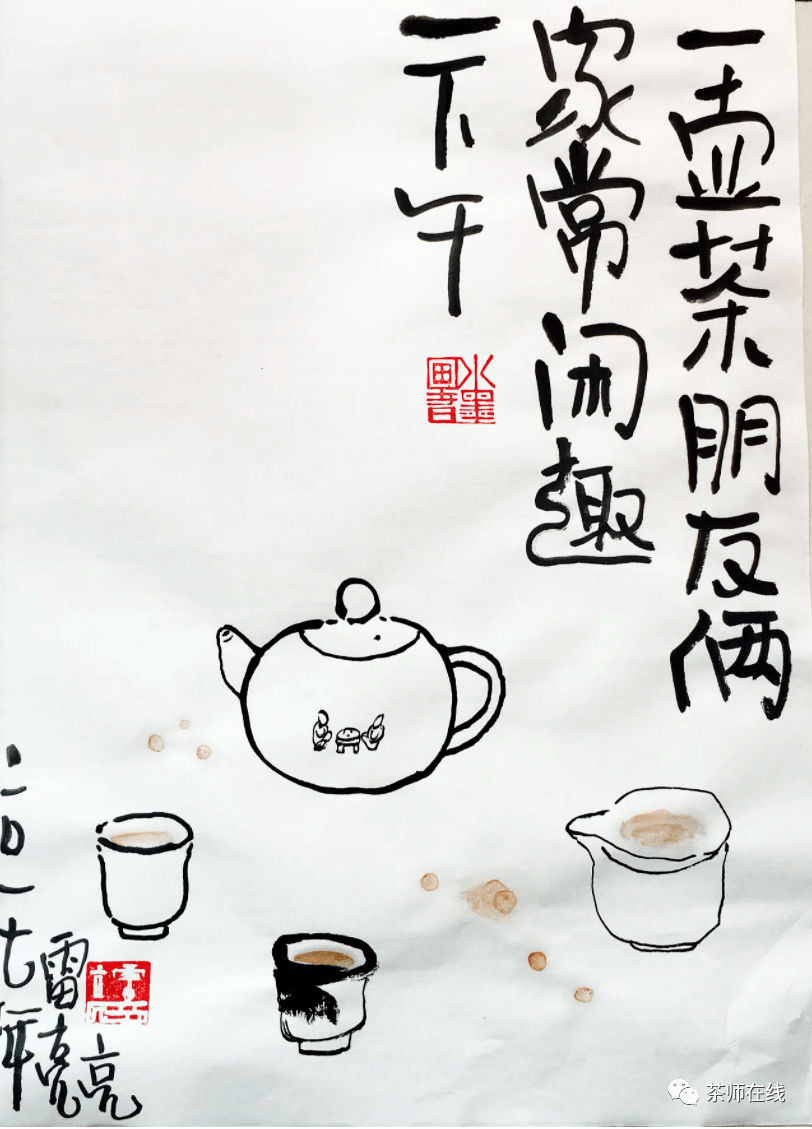 一壶茶朋友俩
家常闲趣
一下午
水墨
二〇一七年
雷亮亮
茶师在线